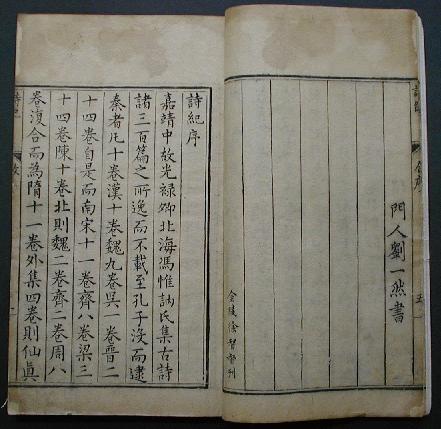 門人劉一然書
金陵徐智督刊
詩紀序
嘉靖中故光祿卿北海馮惟訥氏集古詩
諸三百篇之所逸而不載至孔子沒而逮
秦者凡十卷漢十卷魏九卷吳一卷晉二
十四卷自是而南宋十一卷齊八卷梁三
十四卷陳十卷北則魏二卷齊二卷周八
卷復合而為隋十一卷外集四卷則仙真
詩紀